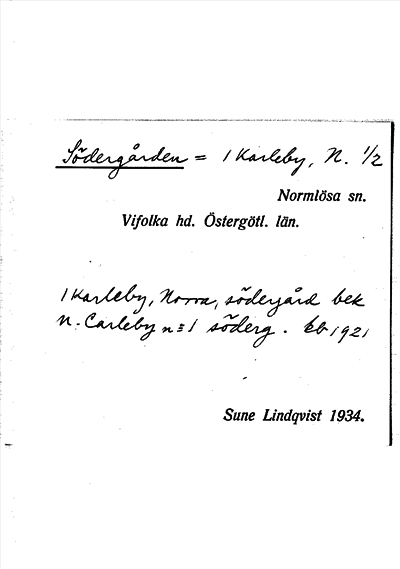 Södergården = 1 Karleby, N. 1/2
Normlösa sn.
Vifolka hd. Östergötl. län.
1 Karleby, Norra, södergård bek
N. Carleby n=1 söderg. kb 1921
Sune Lindqvist 1934.